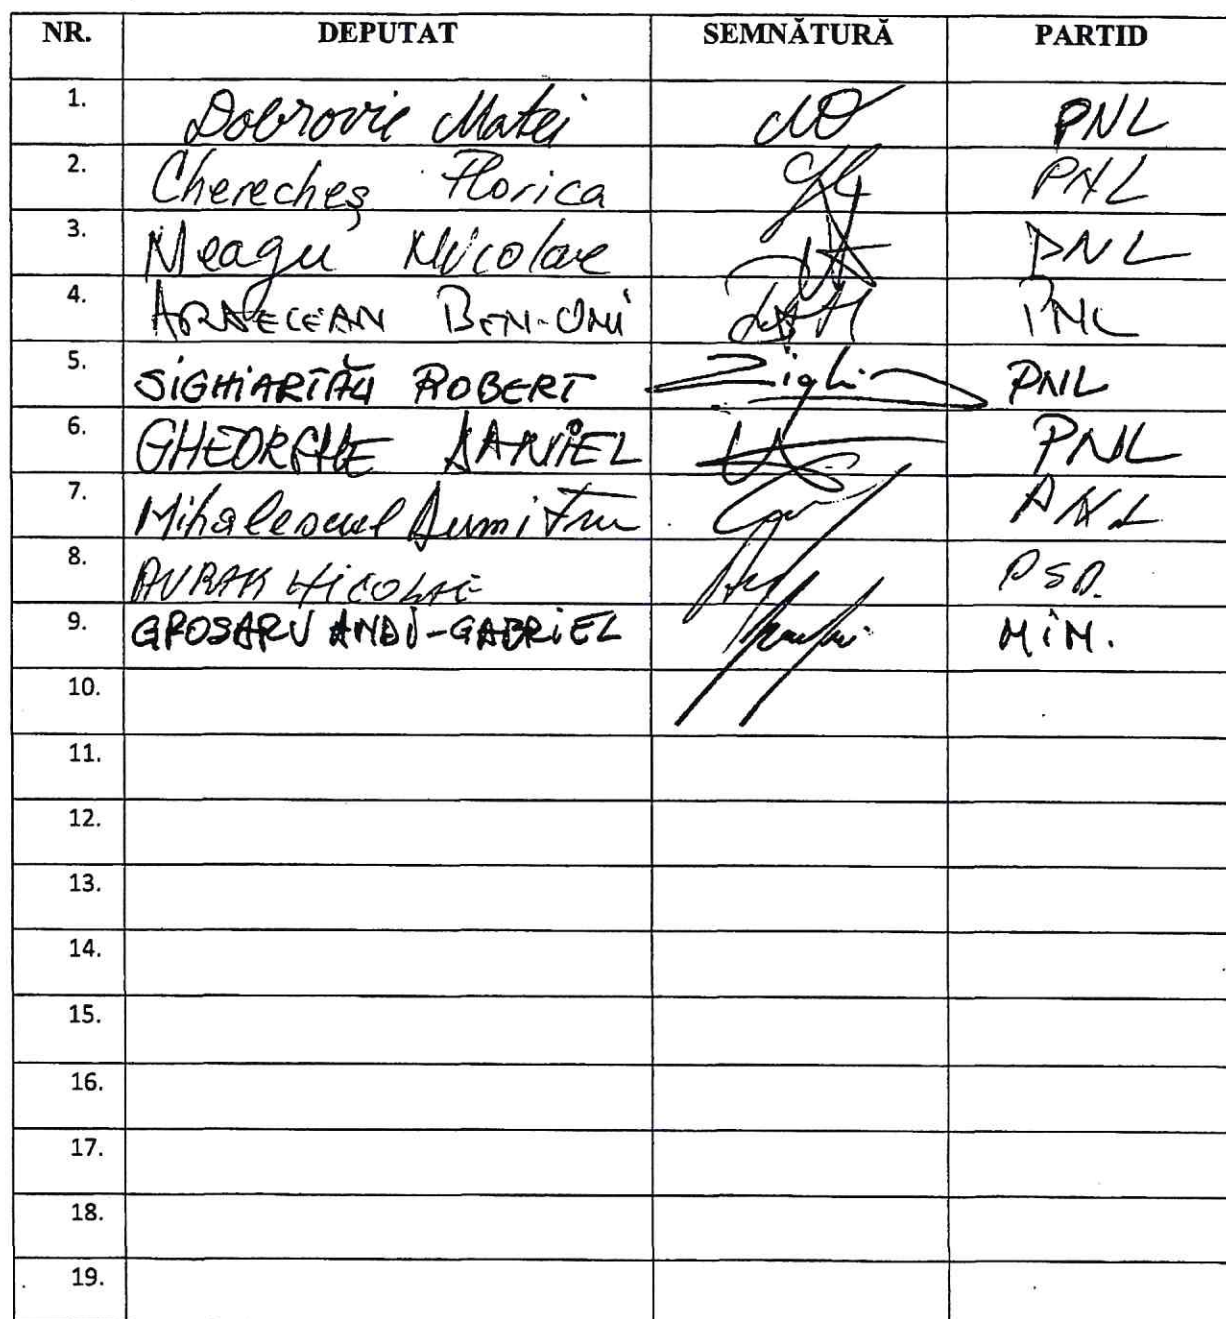 NR. DEPUTAT SEMNĂTURĂ PARTID
1. Dobrovie Matei PNL
2. Cherecheș Florica PNL
3. Neagu Nicolae PNL
4. ARDELEAN BEN-ONI PNL
5. SIGHIARTĂU ROBERT Sighi PNL
6. GHEORGHE DANIEL PNL
7. Mihalescul Dumitru PNL
8. AVRAM NICOLAE PSD.
9. GROSARU ANDI-GABRIEL MIN.
10.
11.
12.
13.
14.
15.
16.
17.
18.
19.